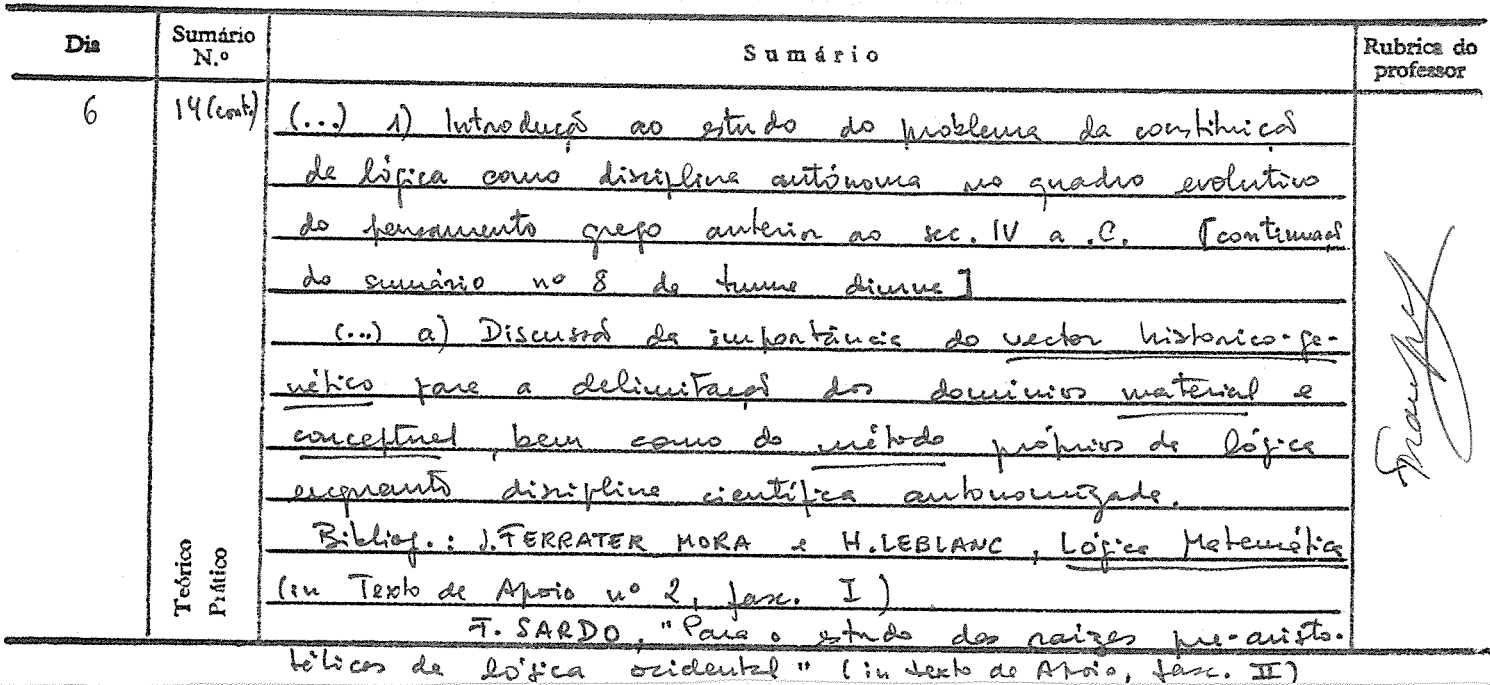 Dia Sumário N.º Sumário Rubrica do professor
6 14 (cont.) (...) 1) Introdução ao estudo do problema da constituição
da lógica como disciplina autónoma no quadro evolutivo
do pensamento grego anterior ao sec. IV a.C. [continuação
do sumário nº 8 da turma diurna]
(...) a) Discussão da importância do vector historico-ge-
nético para a delimitação dos domínios material e
conceptual, bem como do método próprios da lógica
enquanto disciplina científica autonomizada.
Bibliog.: J. FERRATER MORA e H. LEBLANC, Lógica Matemática
(in Texto de Apoio nº 2, fasc. I)
F. SARDO, "Para o estudo das raízes pré-aristo-
télicas da lógica ocidental" (in texto de Apoio, fasc. II)
Teórico
Prático